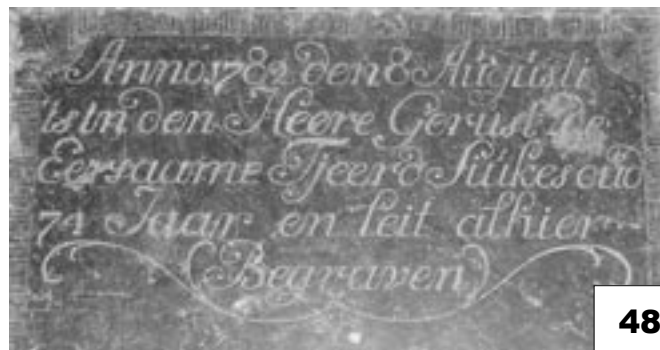 Anno 1782 den 8 Augusti
is in den Heere Gerust de
Eersaame Tjeerd Suikes oud
74 Jaar en leit alhier
Begraven
48